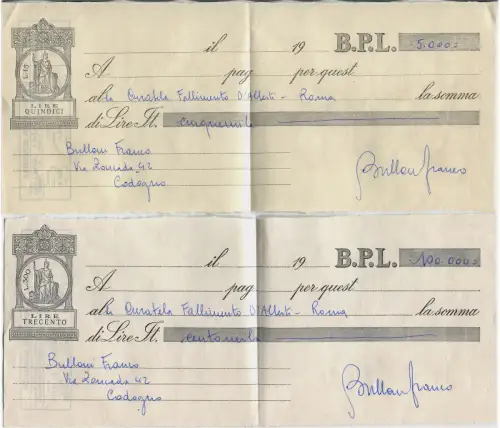 il 19 B.P.L. 5.000=
A pag per quest
L.15
alla Curatela Fallimento D'Alberti - Roma la somma
LIRE
QUINDICI
di Lire It. cinquemila
Bulloni Franco
Via Zoncada, 42
Codogno
Bulloni Franco
il 19 B.P.L. 100.000=
L.300
A pag per quest
alla Curatela Fallimento D'Alberti - Roma la somma
LIRE
TRECENTO
di Lire It. centomila
Bulloni Franco
Via Zoncada 42
Codogno
Bulloni Franco